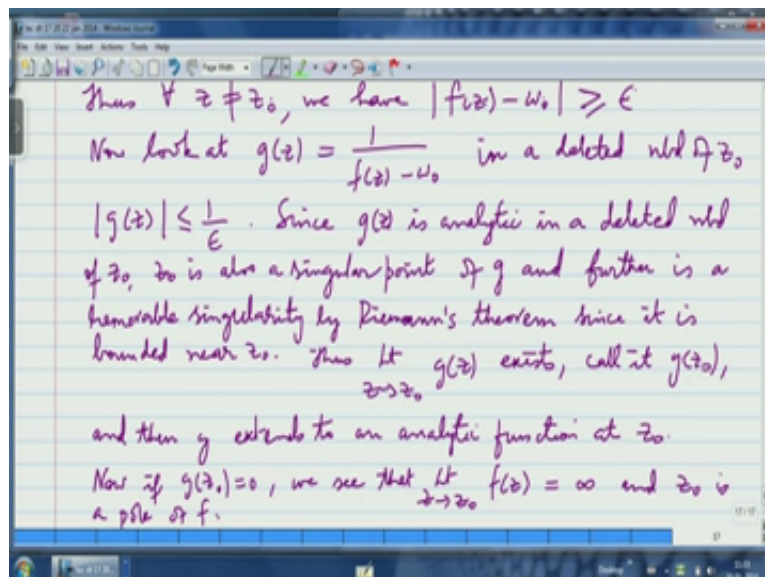 File Edit View Insert Actions Tools Help
Page Width
Thus ∀ z ≠ z₀, we have |f(z) - w₀| ≥ ϵ
Now look at g(z) = 1/(f(z) - w₀) in a deleted nbd of z₀
|g(z)| ≤ 1/ϵ. Since g(z) is analytic in a deleted nbd
of z₀, z₀ is also a singular point of g and further is a
removable singularity by Riemann's theorem since it is
bounded near z₀. Thus Lt_{z→z₀} g(z) exists, call it g(z₀),
and then g extends to an analytic function at z₀.
Now if g(z₀)=0, we see that Lt_{z→z₀} f(z) = ∞ and z₀ is
a pole of f.
17/17
17